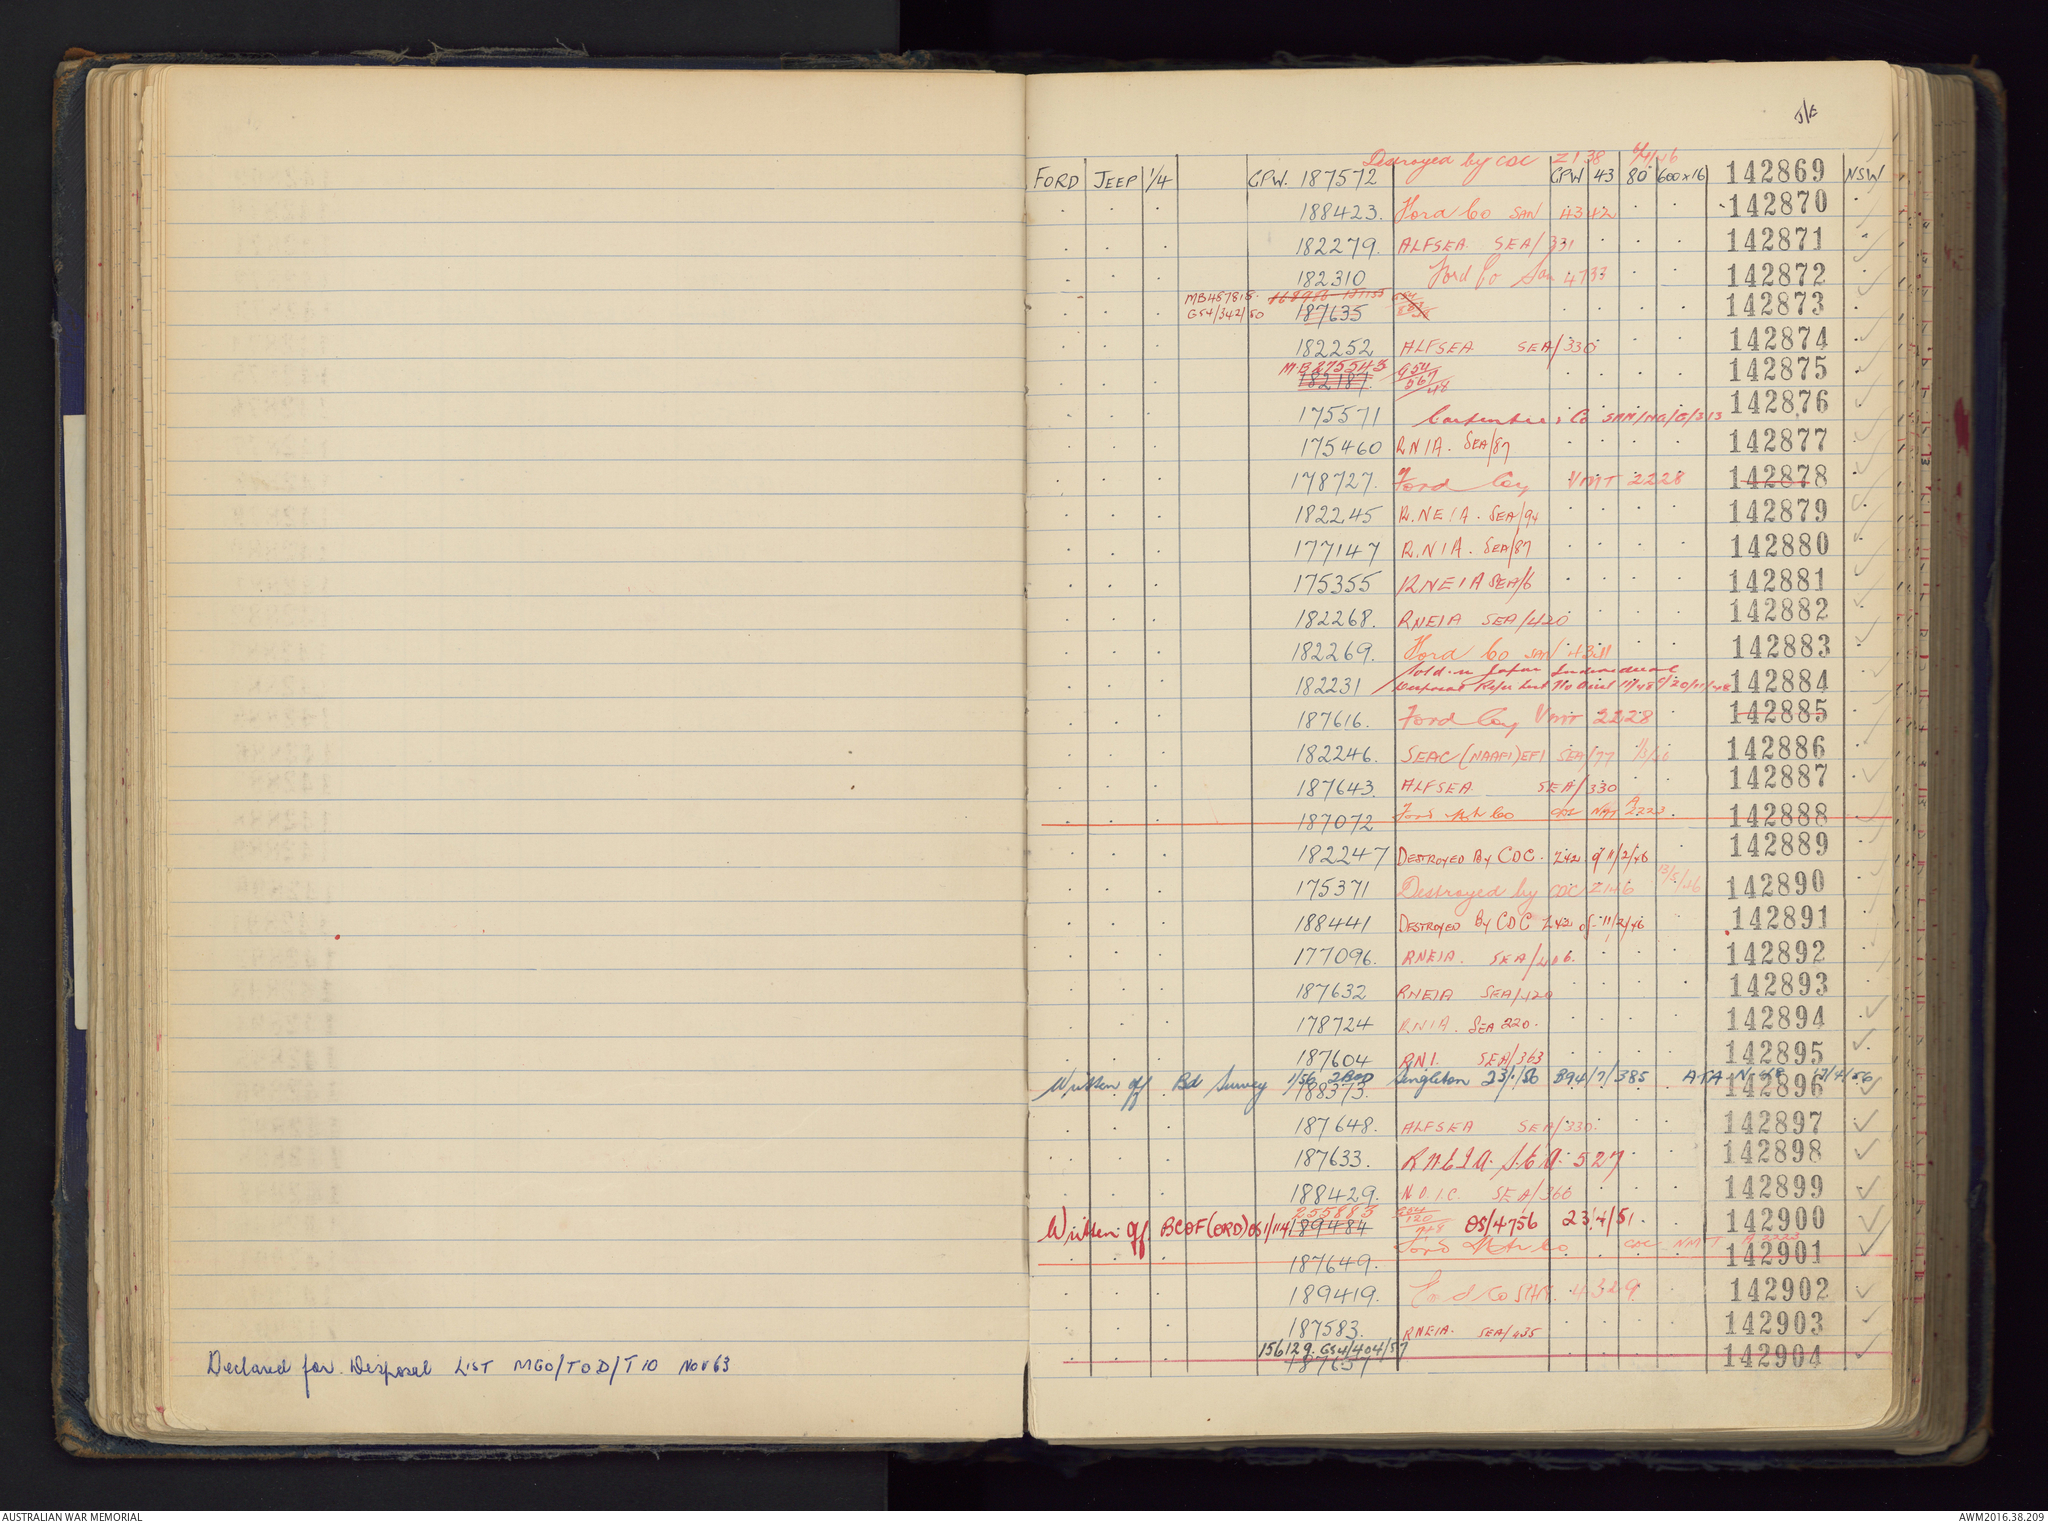 Declared for Disposal LIST MGO/TOD/T10 NOV 63
Destroyed by CDC Z138
FORD JEEP 1/4 GPW. 187572 GPW 43 80 600x16 142869 NSW
188423. Ford Co SAN 4342 142870
182279. ALFSEA SEA/331 142871
182310 Ford Co San 4733 142872
MB487818.
G54/342/50 187635 142873
182252 ALFSEA SEA/330 142874
MB 275543 G54/567/48
182187. 142875
175571 Carpenter & Co SAN/NG/G/313 142876
175460 RNIA. SEA/87 142877
178727. Ford Coy VMT 2228 142878
182245 R.NEIA. SEA/94 142879
177147 R.NIA. SEA/87 142880
175355 RNEIA SEA/6 142881
182268. RNEIA SEA/420 142882
182269. Ford Co SAN 4341 142883
Sold in Japan
182231 142884
187616. Ford Coy VMT 2228 142885
182246. SEAC (NAAFI) EFI SEA/77 142886
187643. ALFSEA SEA/330 142887
187072 Ford Mtr Co CDC NMT A 2223. 142888
182247 DESTROYED By CDC. Z42 of 11/2/46 142889
175371 Destroyed by CDC Z146 13/5/46 142890
188441 DESTROYED By CDC Z42 of 11/2/46 142891
177096. RNEIA. SEA/406. 142892
187632 RNEIA SEA/420 142893
178724 RNIA. SEA 220. 142894
187604 RNI. SEA/363 142895
Written off Bd Survey 1/56 2BOD Singleton 23/1/56 B94/7/385 17/4/56
188373. 142896
187648. ALFSEA SEA/330. 142897
187633. RNEIA. S.E.A. 527 142898
188429. N.O.I.C. SEA/360 142899
255883
Written off. BCOF(ORD)OS1/114 189484 OS/4756 23/4/51. 142900
Ford Mtr Co CDC NMT A 2223
187649. 142901
189419. Ford Co SAN. 4329 142902
187583. RNEIA. SEA/435 142903
156129. G54/404/57
187657 142904
AUSTRALIAN WAR MEMORIAL
AWM2016.38.209